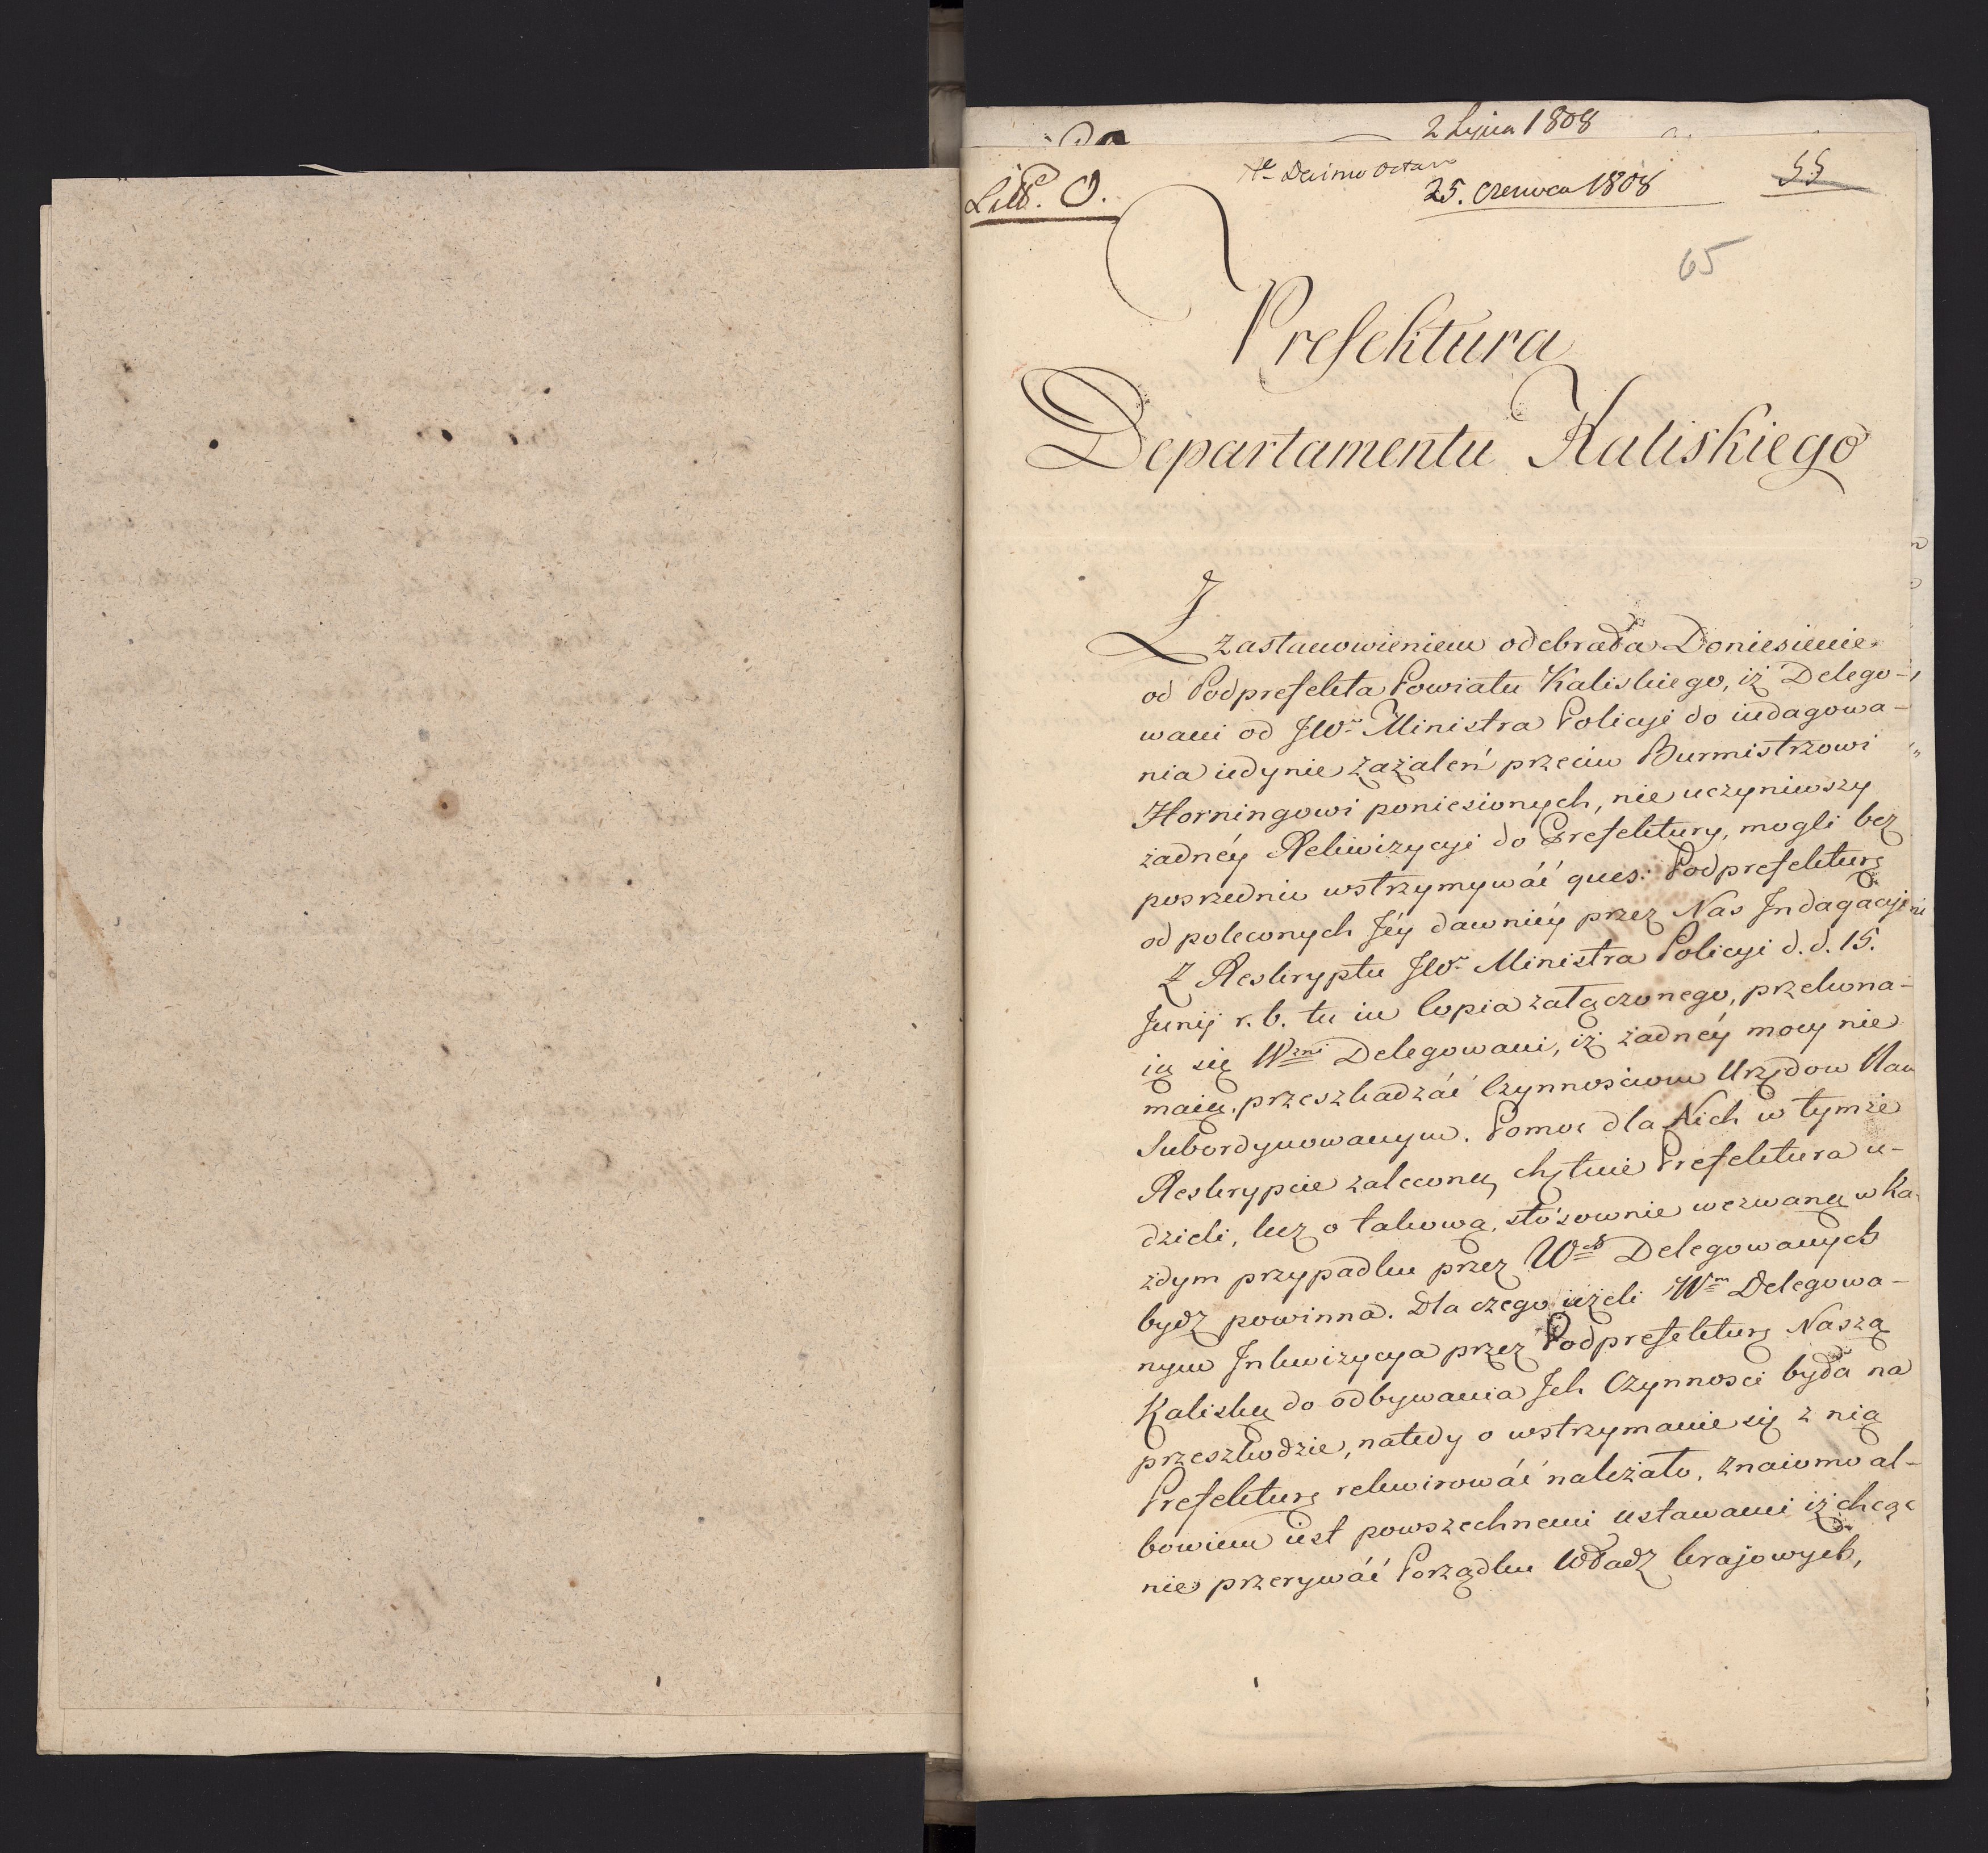 2 Lipca 1808
Litt. O.
Decimo Octavo
25. Czerwca 1808
55
65
Prefektura
Departamentu Kaliskiego
Z zastanowieniem odebrała Doniesienie
od Podprefekta Powiatu Kaliskiego, iż Delego-
wani od JW. Ministra Policyi do indagowa-
nia iedynie zażaleń przeciw Burmistrzowi
Horningowi poniesionych, nie uczyniwszy
żadnéy Rekwizycyi do Prefektury, mogli bez
posrednio wstrzymywáć ques: Podprefekturę
od poleconych Jéy dawniéy przez Nas Indagacyi
Z Reskryptu JW. Ministra Policyi d. d. 15.
Junij r. b. tu in Copia załączonego, przekona-
ią się Wzni Delegowani, iż żadnéy mocy nie
maią, przeszkadzáć Czynnościom Urzędow Nam
Subordynowanym. Pomoc dla Nich w tymże
Reskrypcie zaleconą, chętnie Prefektura u-
dzieli, lecz o takową, stósownie wezwaną w ka-
żdym przypadku przez Wch Delegowanych
bydź powinna. Dla czego ieżeli Wm Delegowa-
nym Inkwizycya przez Podprefekturę Naszą
Kaliską do odbywania Ich Czynnosci była na
przeszkodzie, natedy o wstrzymanie się z nią
Prefekturę rekwirowáć należało, znaiomo al-
bowiem iest powszechnemi ustawami iż chcąc
nie przerywáć Porządku Władz krajowych,